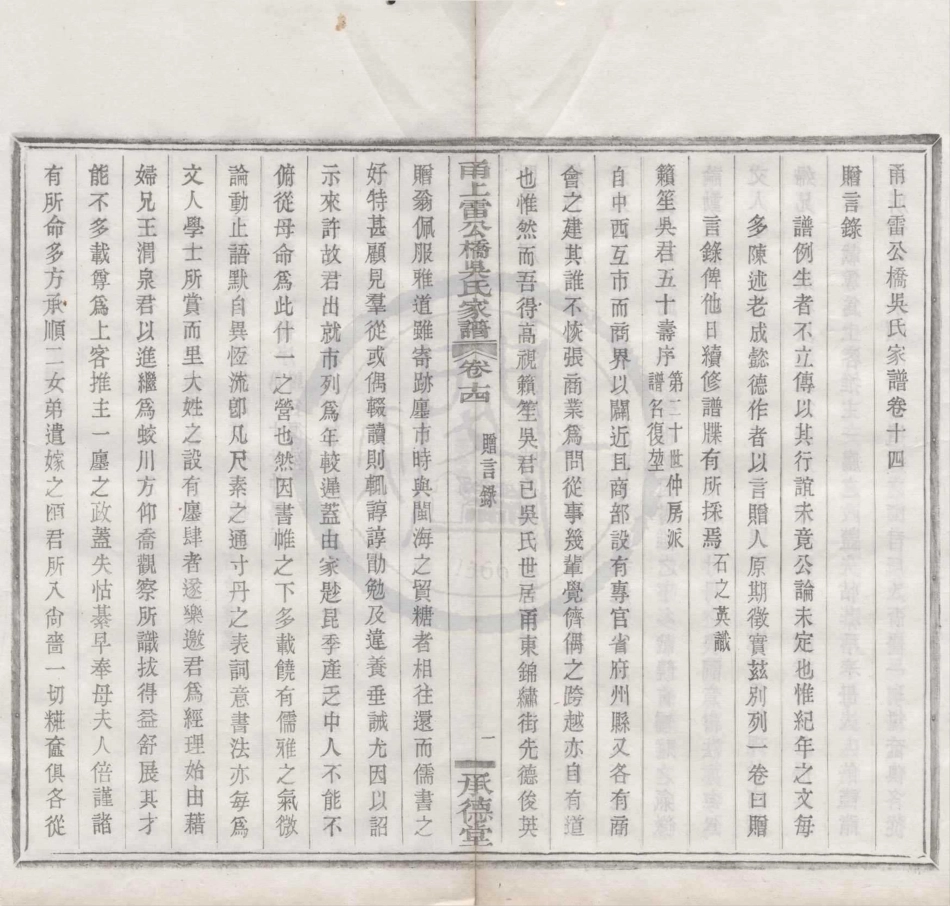 甬上雷公橋吳氏家譜卷十四
贈言錄
譜例生者不立傳以其行誼未竟公論未定也惟紀年之文每
多陳述老成懿德作者以言贈人原期徵實茲別列一卷曰贈
言錄俾他日續修譜牒有所採焉 石之英識
籟笙吳君五十壽序 第二十世仲房派
譜名復堃
自中西互市而商界以闢近且商部設有專官省府州縣又各有商
會之建其誰不恢張商業為問從事幾輩覺儕偶之跨越亦自有道
也惟然而吾得高視籟笙吳君已吳氏世居甬東錦繡街先德俊英
甬上雷公橋吳氏家譜 卷十四 贈言錄 一 承德堂
贈翁佩服雅道雖寄跡廛市時與閩海之貿糖者相往還而儒書之
好特甚顧見羣從或偶輟讀則輒諄諄勖勉及違養垂誡尤因以詔
示來許故君出就市列為年較遲蓋由家懸昆季產乏中人不能不
俯從母命為此什一之營也然因書帷之下多載饒有儒雅之氣微
論動止語默自異恆流卽凡尺素之通寸丹之表詞意書法亦每為
文人學士所賞而里大姓之設有廛肆者遂樂邀君為經理始由藉
婦兄王渭泉君以進繼為蛟川方仰喬觀察所識拔得益舒展其才
能不多載尊為上客推主一廛之政蓋失怙綦早奉母夫人倍謹諸
有所命多方承順二女弟遣嫁之頤君所入尙嗇一切糚奩俱各從